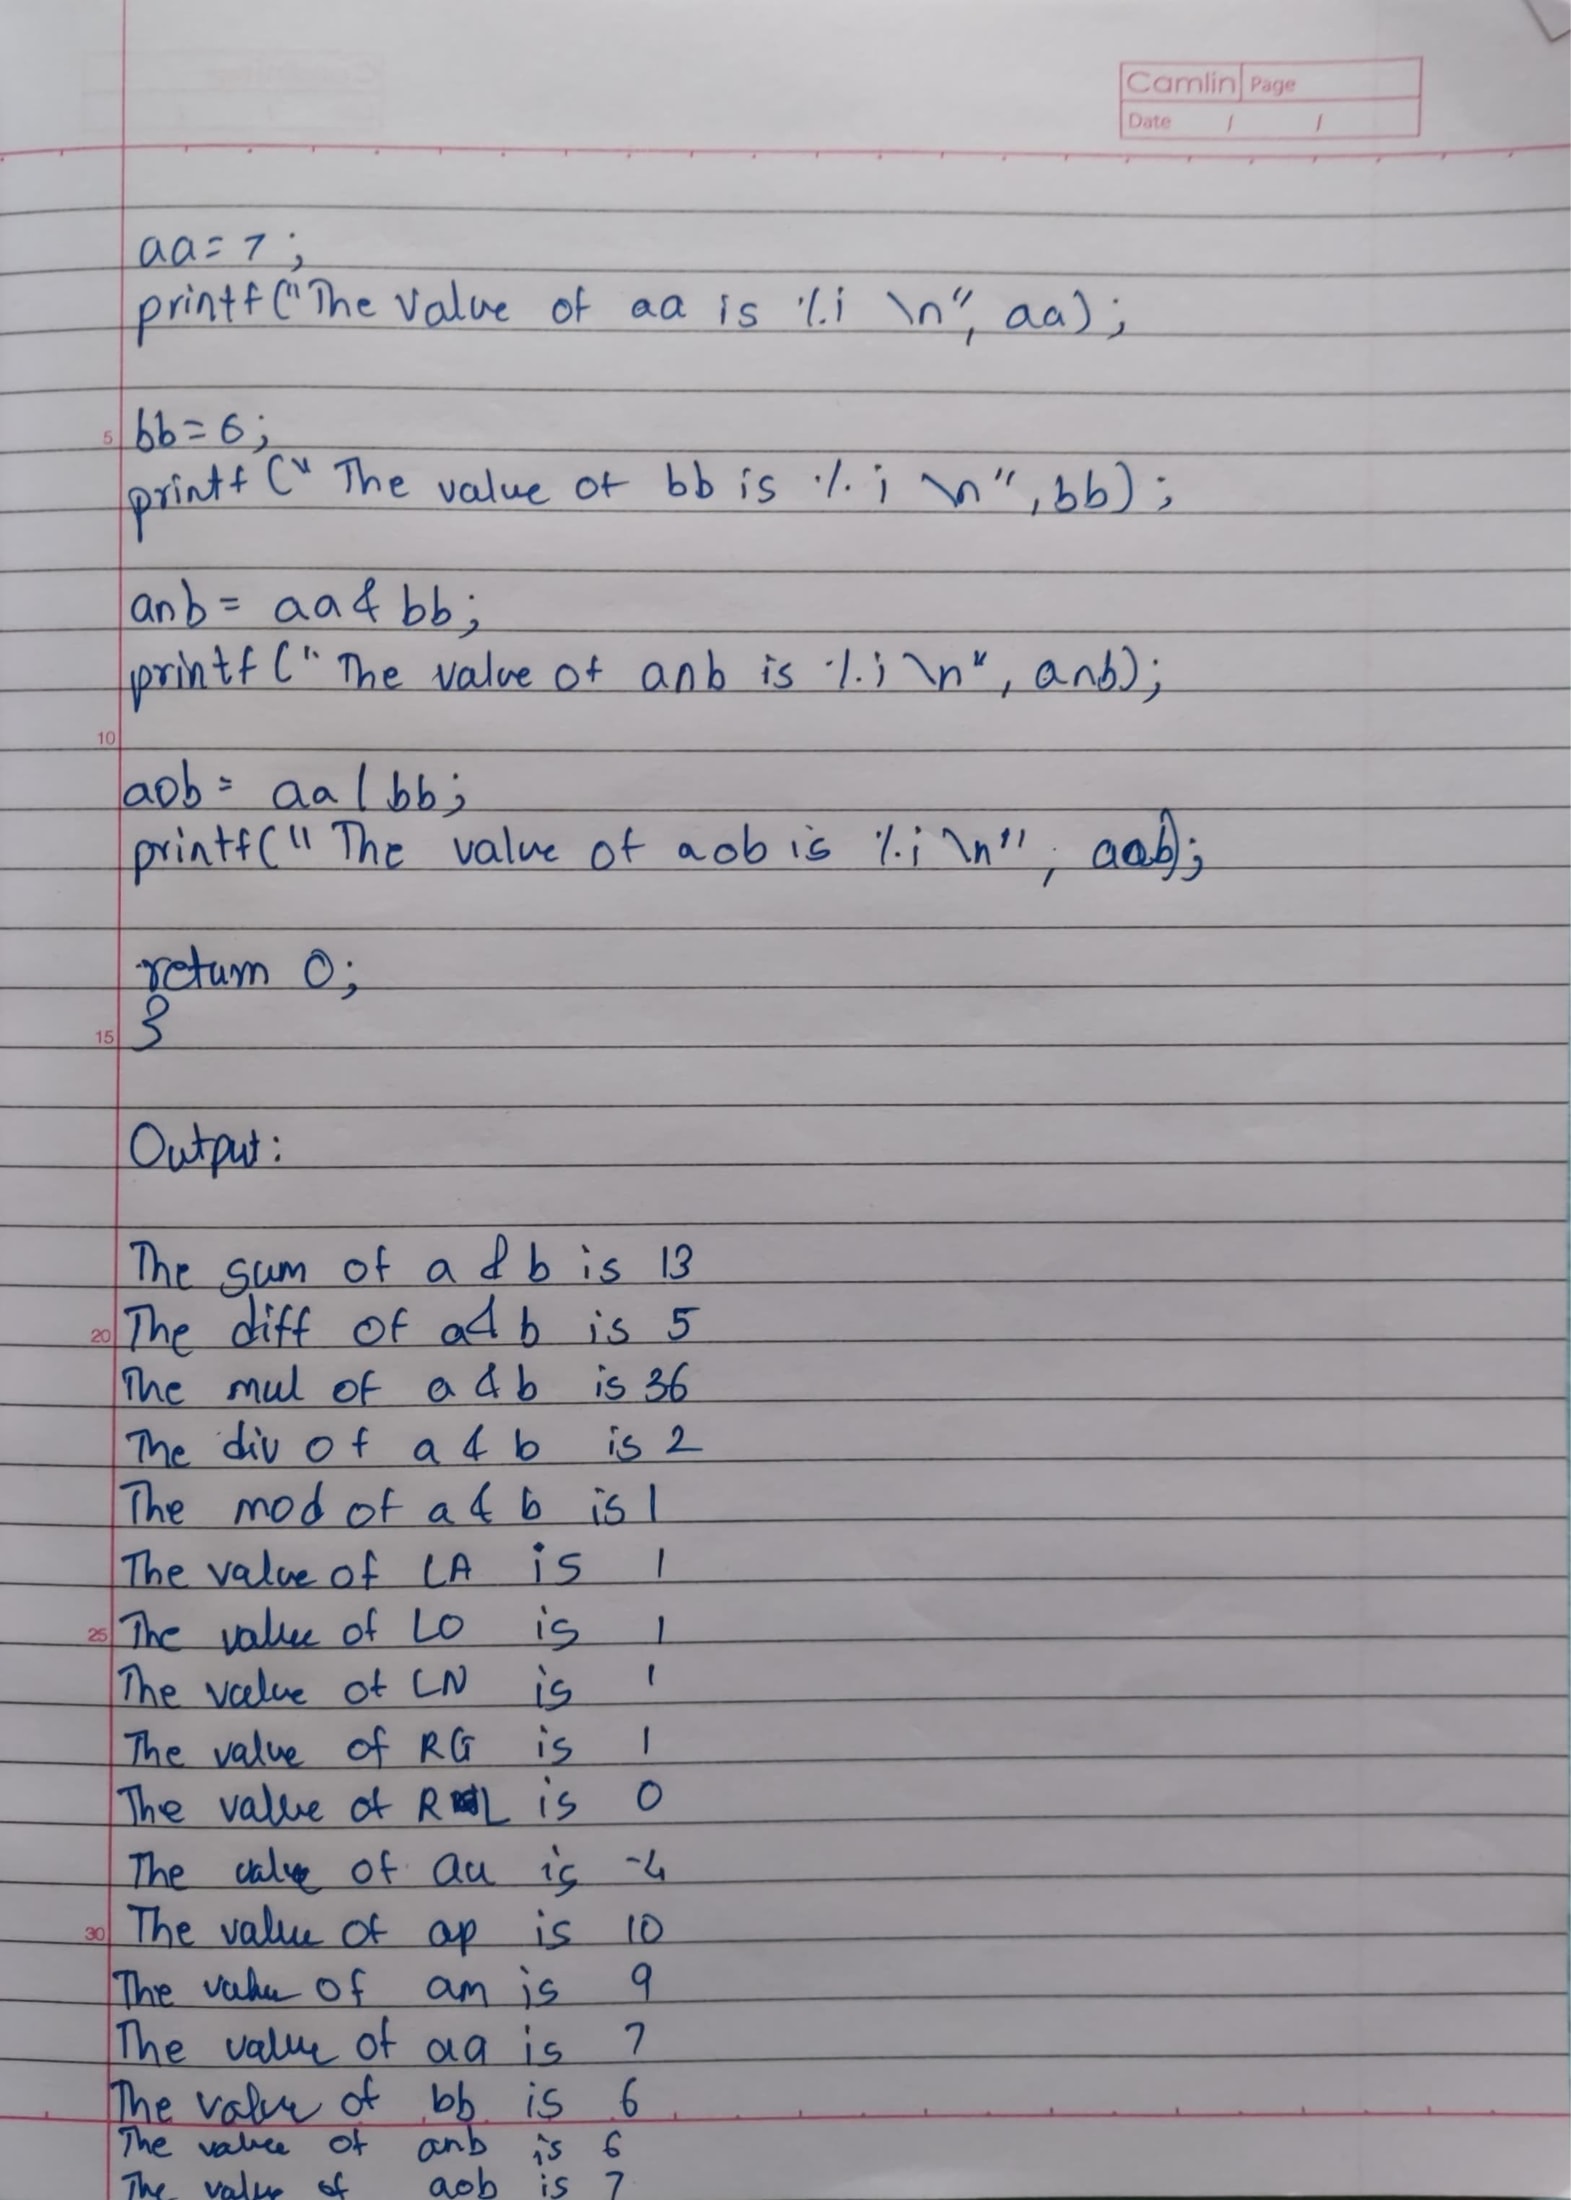 Camlin Page
Date / /
aa = 7 ;
printf ("The Value of aa is %i \n", aa) ;
5
bb = 6 ;
printf (" The value of bb is %i \n" , bb) ;
anb = aa & bb ;
printf (" The value of anb is %i \n" , anb) ;
10
aob = aa | bb ;
printf (" The value of aob is %i \n" , aob) ;
return 0 ;
15 }
Output :
The sum of a & b is 13
20 The diff of a & b is 5
The mul of a & b is 36
The div of a & b is 2
The mod of a & b is 1
The value of LA is 1
25 The value of LO is 1
The value of LN is 1
The value of RG is 1
The value of RL is 0
The value of au is -4
30 The value of ap is 10
The value of am is 9
The value of aa is 7
The value of bb is 6
The value of anb is 6
The value of aob is 7